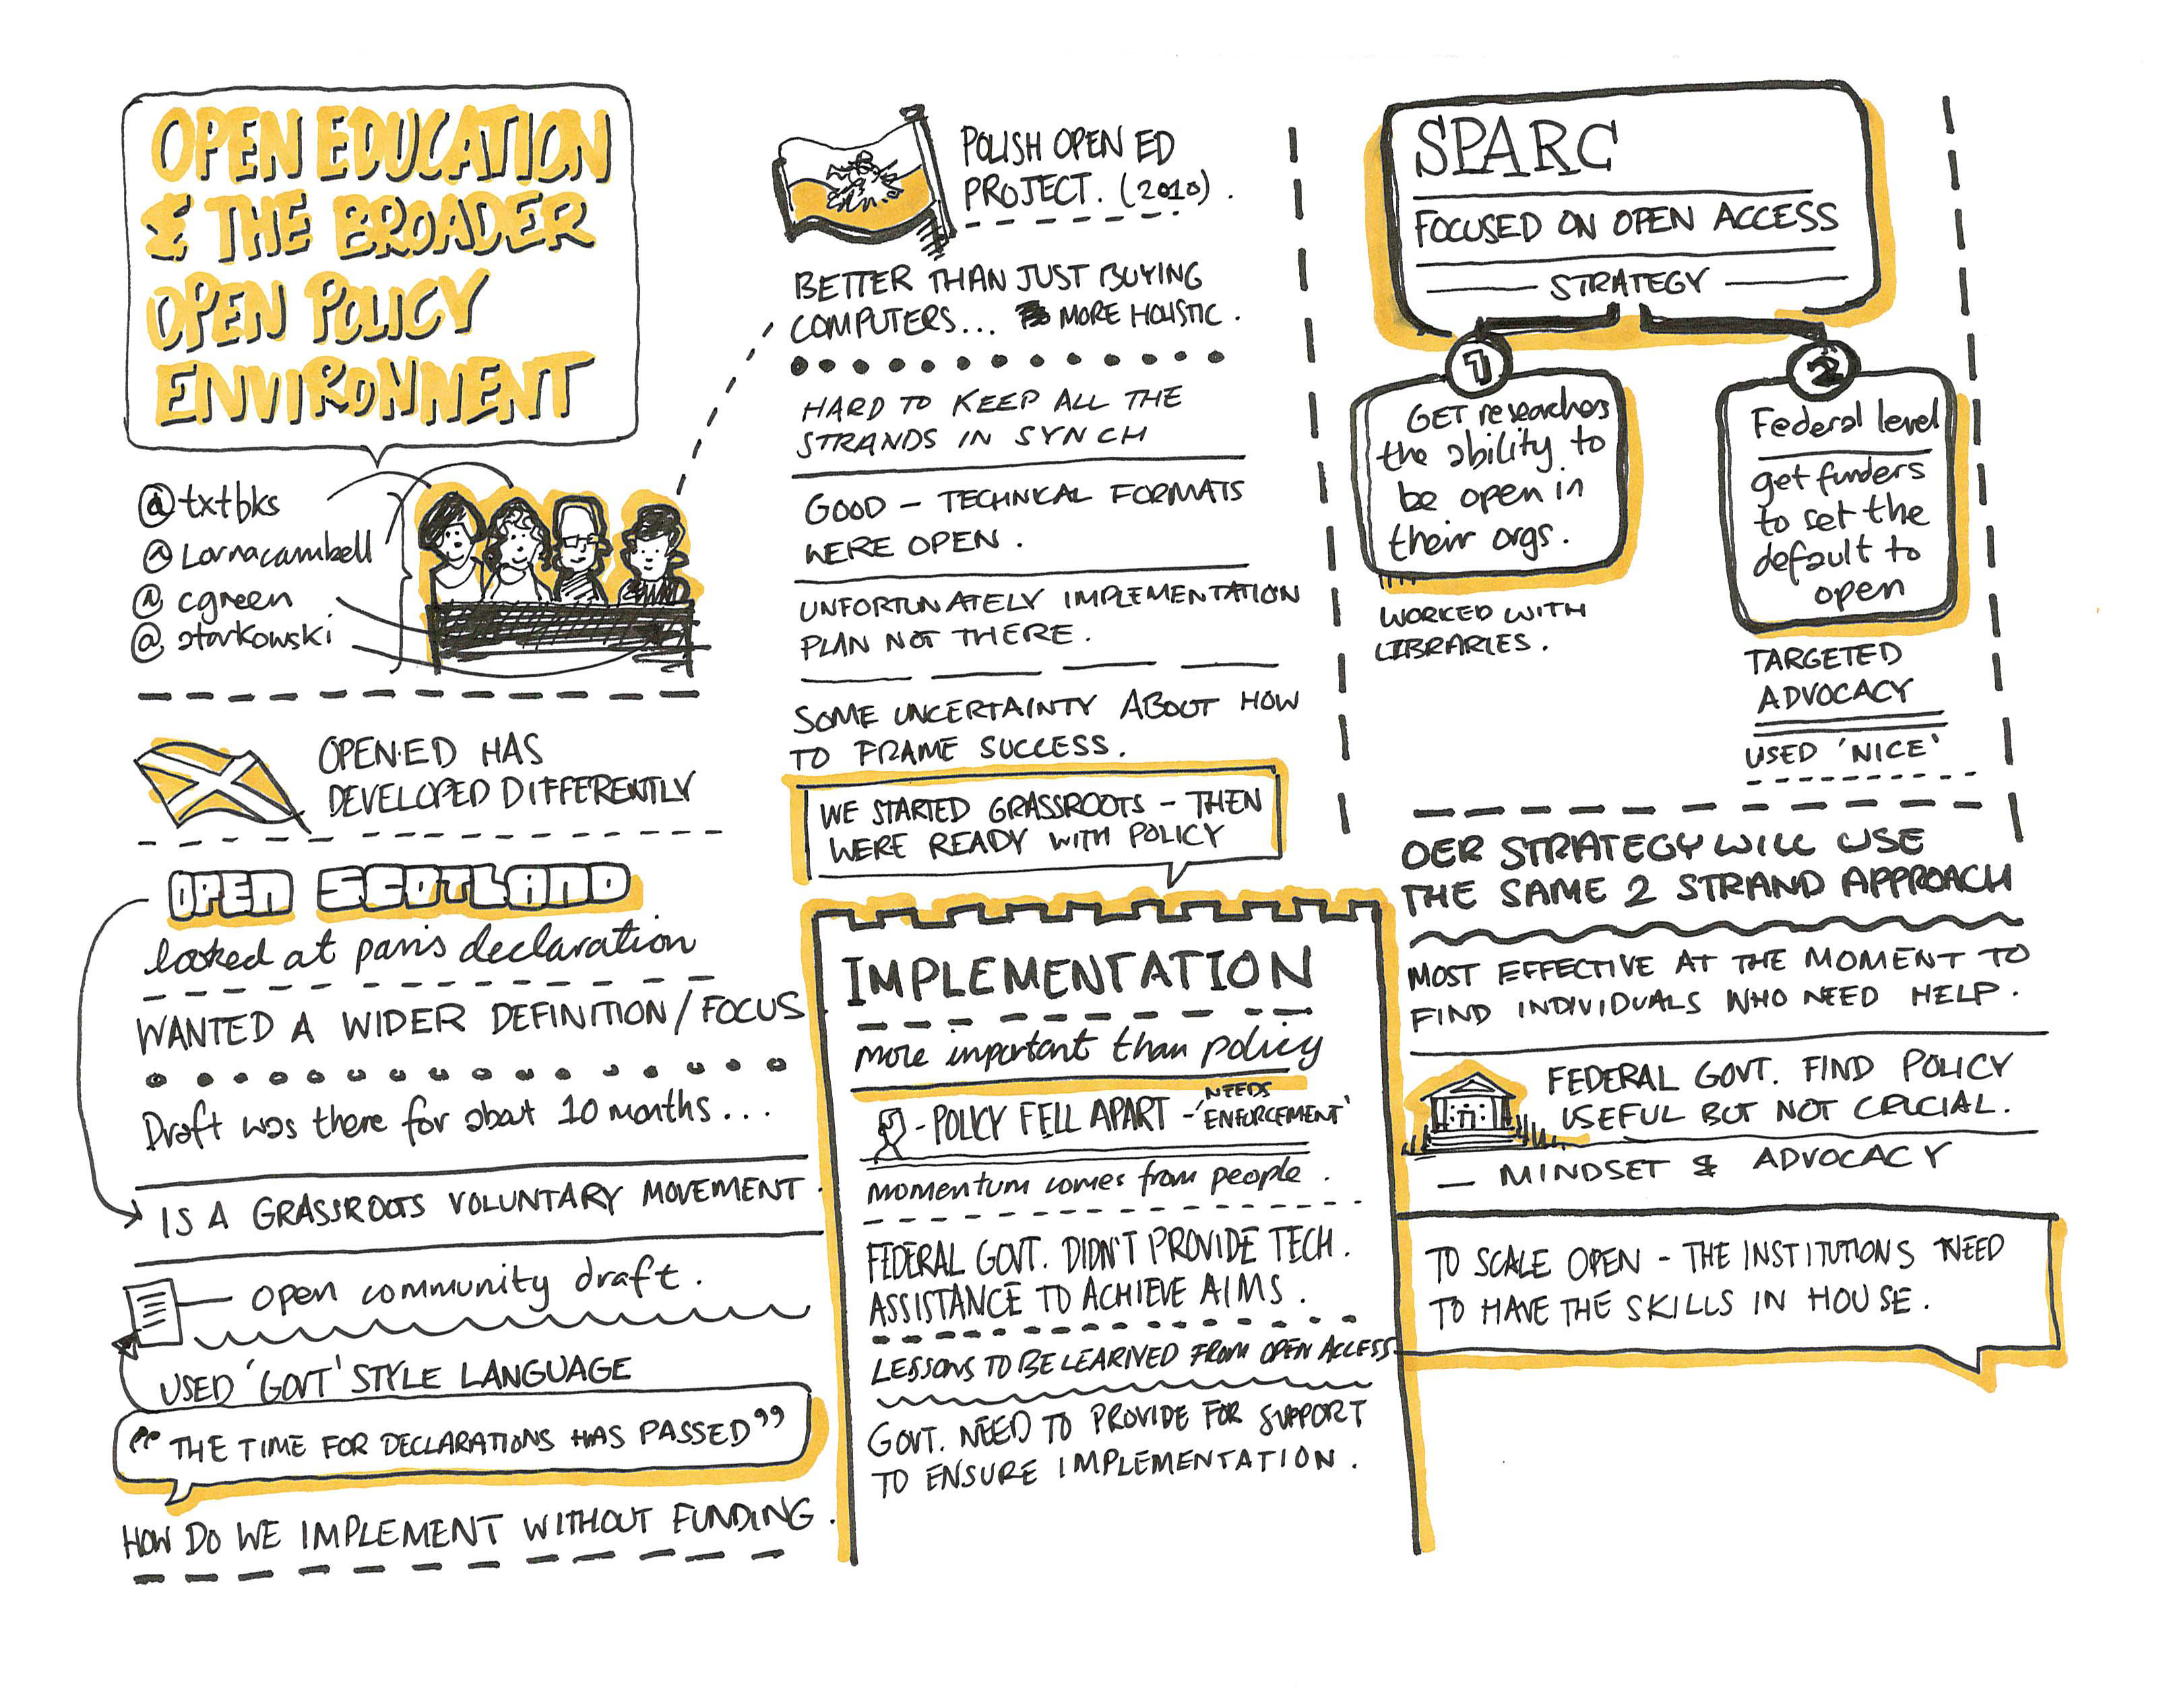 OPEN EDUCATION
& THE BROADER
OPEN POLICY
ENVIRONMENT
@txtbks
@Lornacambell
@cgreen
@atarkowski
OPEN·ED HAS
DEVELOPED DIFFERENTLY
OPEN SCOTLAND
looked at paris declaration
WANTED A WIDER DEFINITION/FOCUS
Draft was there for about 10 months...
IS A GRASSROOTS VOLUNTARY MOVEMENT.
open community draft.
USED 'GOVT' STYLE LANGUAGE
"THE TIME FOR DECLARATIONS HAS PASSED"
HOW DO WE IMPLEMENT WITHOUT FUNDING.
POLISH OPEN ED
PROJECT. (2010).
BETTER THAN JUST BUYING
COMPUTERS... MORE HOLISTIC.
HARD TO KEEP ALL THE
STRANDS IN SYNCH
GOOD - TECHNICAL FORMATS
WERE OPEN.
UNFORTUNATELY IMPLEMENTATION
PLAN NOT THERE.
SOME UNCERTAINTY ABOUT HOW
TO FRAME SUCCESS.
WE STARTED GRASSROOTS - THEN
WERE READY WITH POLICY
IMPLEMENTATION
more important than policy
- POLICY FELL APART - NEEDS
'ENFORCEMENT'
momentum comes from people.
FEDERAL GOVT. DIDN'T PROVIDE TECH.
ASSISTANCE TO ACHIEVE AIMS.
LESSONS TO BE LEARNED FROM OPEN ACCESS
GOVT. NEED TO PROVIDE FOR SUPPORT
TO ENSURE IMPLEMENTATION.
SPARC
FOCUSED ON OPEN ACCESS
STRATEGY
1
GET researchers
the ability to
be open in
their orgs.
WORKED WITH
LIBRARIES.
2
Federal level
get funders
to set the
default to
open
TARGETED
ADVOCACY
USED 'NICE'
OER STRATEGY WILL USE
THE SAME 2 STRAND APPROACH
MOST EFFECTIVE AT THE MOMENT TO
FIND INDIVIDUALS WHO NEED HELP.
FEDERAL GOVT. FIND POLICY
USEFUL BUT NOT CRUCIAL.
— MINDSET & ADVOCACY
TO SCALE OPEN - THE INSTITUTIONS NEED
TO HAVE THE SKILLS IN HOUSE.